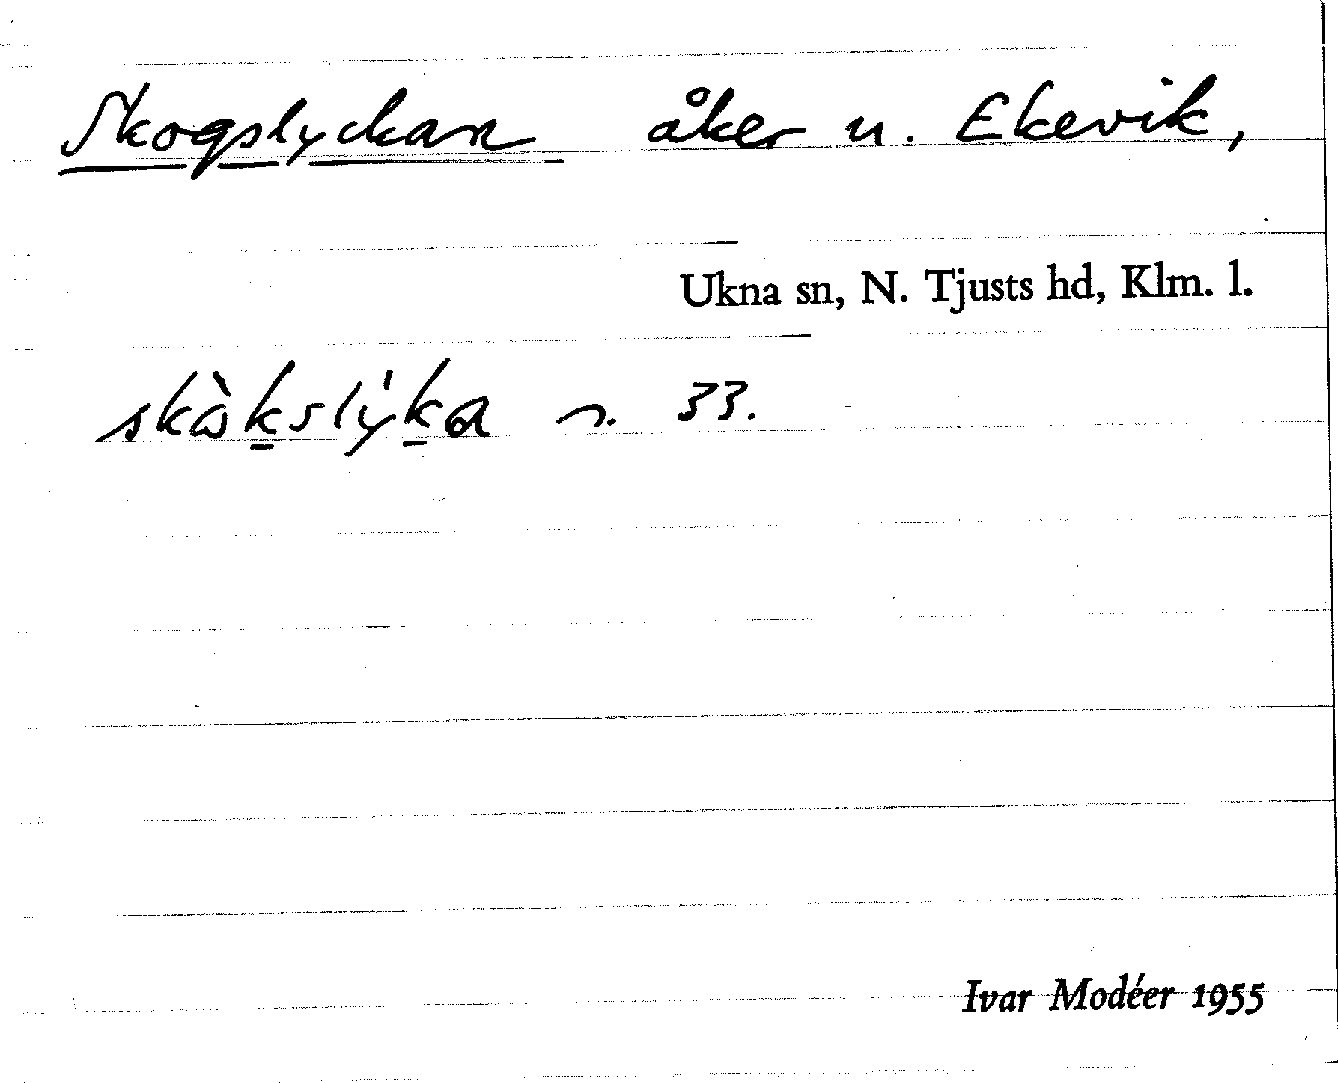 Skogslyckan åker u. Ekevik,
Ukna sn, N. Tjusts hd, Klm. l.
33.
Ivar Modéer 1955